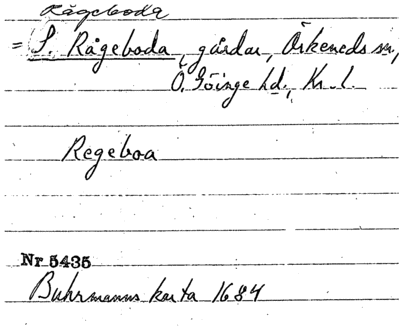 Rågeboda
= S. Rågeboda, gårdar, Örkeneds sn,
Ö. Göinge hd., Kr. l.
Regeboa
Nr 5435
Buhrmanns karta 1684